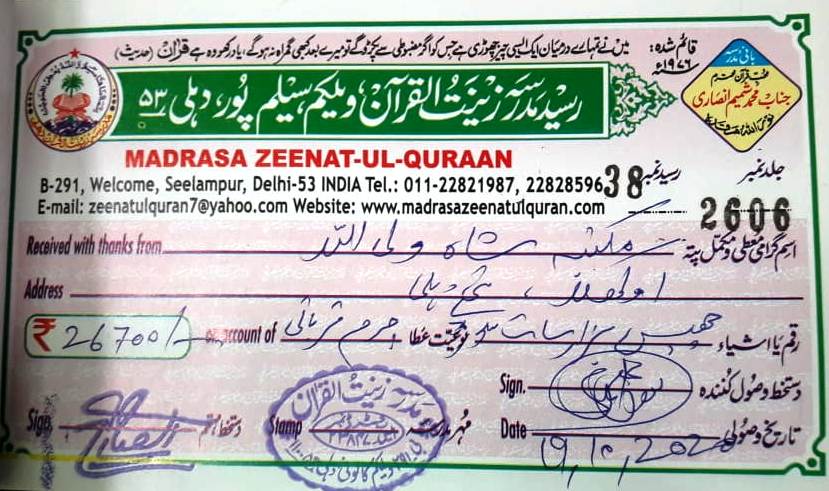 قائم شدہ: ۱۹۷۶ء
میں نے تمہارے درمیان ایک ایسی چیز چھوڑی ہے جس کو اگر مضبوطی سے پکڑو گے تو میرے بعد کبھی گمراہ نہ ہوگے، یاد رکھو وہ ہے قرآن (حدیث)
بانی مدرسہ
جناب محمد شمیم انصاری
رسید مدرسہ زینت القرآن، ویلکم، سیلم پور، دہلی ۵۳
MADRASA ZEENAT-UL-QURAAN
B-291, Welcome, Seelampur, Delhi-53 INDIA Tel.: 011-22821987, 22828596
رسید نمبر 38
جلد نمبر
E-mail: zeenatulquran7@yahoo.com Website: www.madrasazeenatulquran.com
2606
Received with thanks from مکتبہ شاہ ولی اللہ اسم گرامی معطی و مکمل پتہ
Address اوکھلا، نئی دہلی
₹ 26700/- on account of چرم قربانی نوعیت عطا چھبیس ہزار سات سو رقم یا اشیاء
Sign. دستخط وصول کنندہ
Sign. دستخط مہتمم
Stamp مہر مدرسہ
مدرسہ زینت القرآن
Date تاریخ وصولی